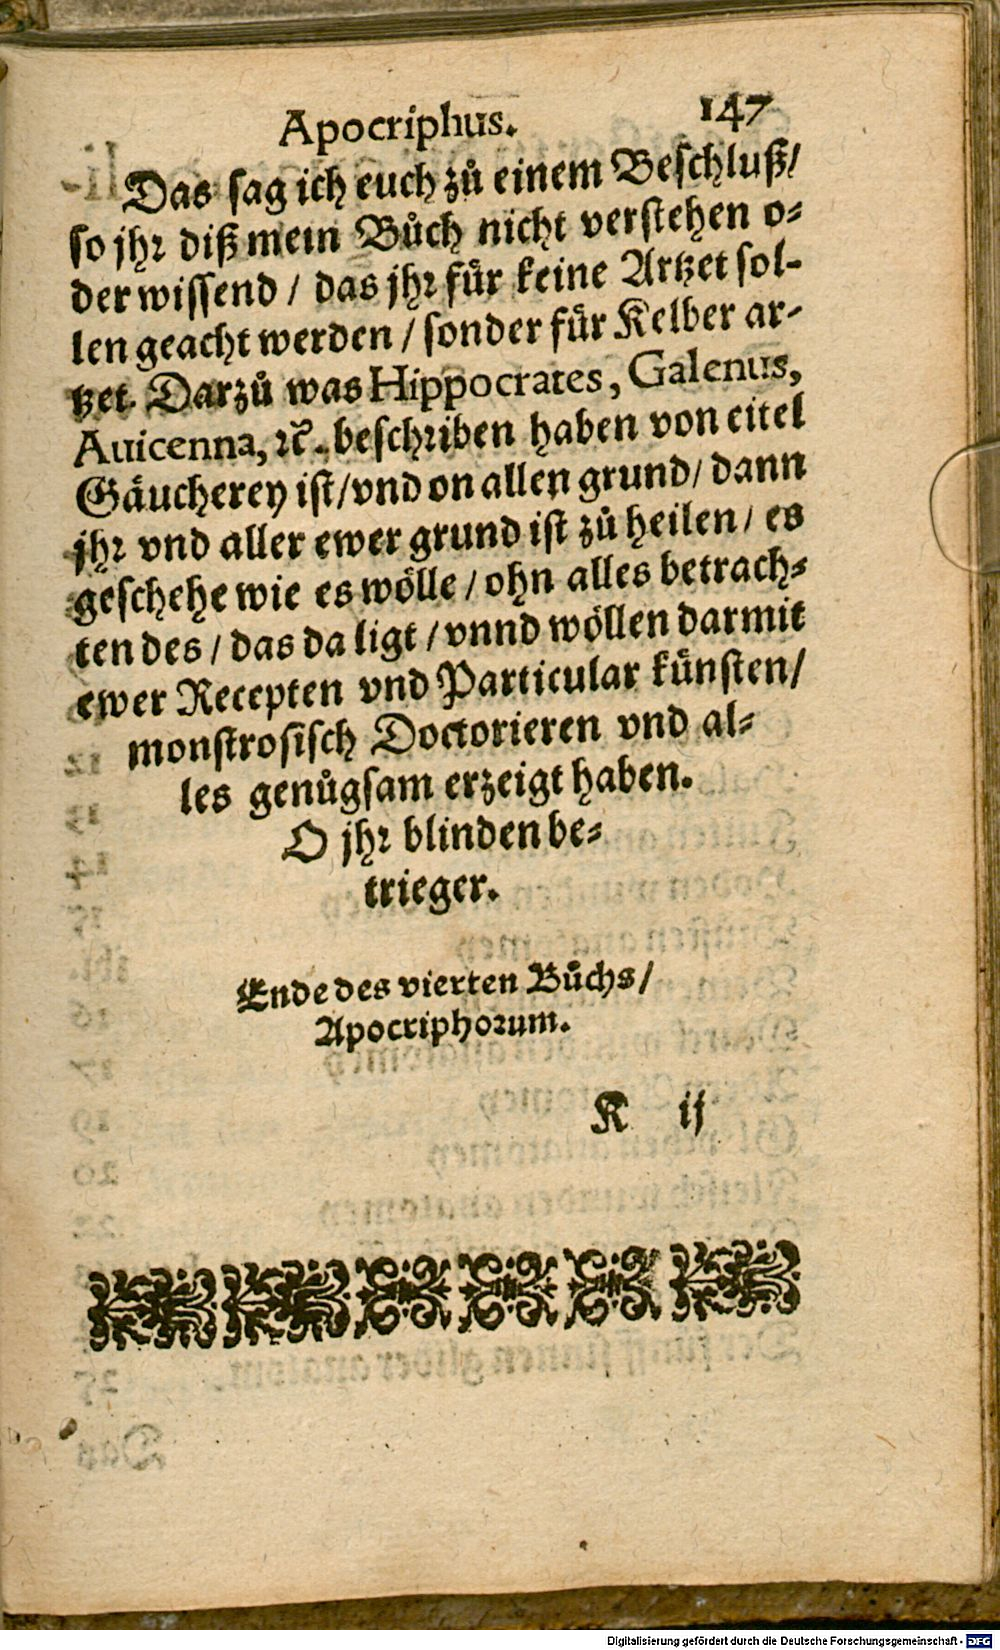 Apocriphus. 147
Das sag ich euch zů einem Beschluß/
so jhr diß mein Bůch nicht verstehen o-
der wissend / das jhr für keine Artzet sol-
len geacht werden / sonder für Kelber ar-
tzet. Darzů was Hippocrates, Galenus,
Auicenna, ꝛc. beschriben haben von eitel
Gäucherey ist/vnd on allen grund/ dann
jhr vnd aller ewer grund ist zů heilen/ es
geschehe wie es wölle / ohn alles betrach-
ten des / das da ligt / vnnd wöllen darmit
ewer Recepten vnd Particular künsten/
monstrosisch Doctorieren vnd al-
les genůgsam erzeigt haben.
O jhr blinden be-
trieger.
Ende des vierten Bůchs/
Apocriphorum.
K ij
Digitalisierung gefördert durch die Deutsche Forschungsgemeinschaft - DFG